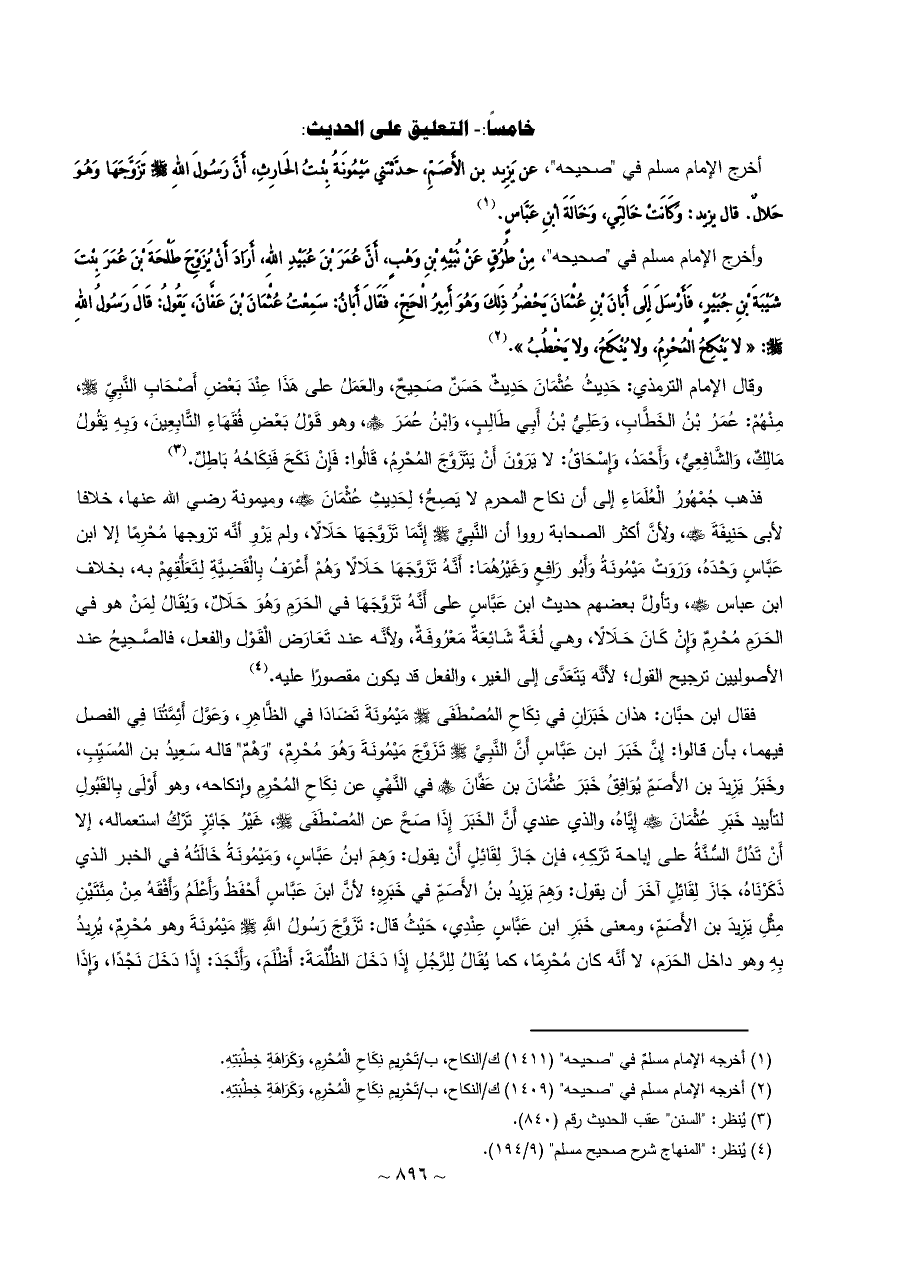 خامساً:- التعليق على الحديث:
أخرج الإمام مسلم في "صحيحه"، عن يَزِيد بن الأَصَمِّ، حدَّثَتْني مَيْمُونَةُ بِنْتُ الحَارِثِ، أَنَّ رَسُولَ اللهِ ﷺ تَزَوَّجَهَا وَهُوَ
حَلالٌ. قال يزيد: وَكَانَتْ خَالَتِي، وَخَالَةَ ابْنِ عَبَّاسٍ.(١)
وأخرج الإمام مسلم في "صحيحه"، مِنْ طُرُقٍ عَنْ نُبَيْهِ بْنِ وَهْبٍ، أَنَّ عُمَرَ بْنَ عُبَيْدِ اللهِ، أَرَادَ أَنْ يُزَوِّجَ طَلْحَةَ بْنَ عُمَرَ بِنْتَ
شَيْبَةَ بْنِ جُبَيْرٍ، فَأَرْسَلَ إِلَى أَبَانَ بْنِ عُثْمَانَ يَحْضُرُ ذَلِكَ وَهُوَ أَمِيرُ الْحَجِّ، فَقَالَ أَبَانُ: سَمِعْتُ عُثْمَانَ بْنَ عَفَّانَ، يَقُولُ: قَالَ رَسُولُ اللهِ
ﷺ: « لا يَنْكِحُ الْمُحْرِمُ، ولا يُنْكَحُ، ولا يَخْطُبُ ».(٢)
وقال الإمام الترمذي: حَدِيثُ عُثْمَانَ حَدِيثٌ حَسَنٌ صَحِيحٌ، والعَمَلُ على هَذَا عِنْدَ بَعْضِ أَصْحَابِ النَّبِيِّ ﷺ،
مِنْهُمْ: عُمَرُ بْنُ الخَطَّابِ، وَعَلِيُّ بْنُ أَبِي طَالِبٍ، وَابْنُ عُمَرَ ﷺ، وهو قَوْلُ بَعْضِ فُقَهَاءِ التَّابِعِينَ، وَبِهِ يَقُولُ
مَالِكٌ، وَالشَّافِعِيُّ، وَأَحْمَدُ، وَإِسْحَاقُ: لا يَرَوْنَ أَنْ يَتَزَوَّجَ المُحْرِمُ، قَالُوا: فَإِنْ نَكَحَ فَنِكَاحُهُ بَاطِلٌ.(٣)
فذهب جُمْهُورُ الْعُلَمَاءِ إلى أن نكاح المحرم لا يَصِحُّ؛ لِحَدِيثِ عُثْمَانَ ﷺ، وميمونة رضي الله عنها، خلافا
لأبى حَنِيفَةَ ﷺ، ولأنَّ أكثر الصحابة رووا أن النَّبِيَّ ﷺ إِنَّمَا تَزَوَّجَهَا حَلَالًا، ولم يَرْوِ أنَّه تزوجها مُحْرِمًا إلا ابن
عَبَّاسٍ وَحْدَهُ، وَرَوَتْ مَيْمُونَةُ وَأَبُو رَافِعٍ وَغَيْرُهُمَا: أَنَّهُ تَزَوَّجَهَا حَلَالًا وَهُمْ أَعْرَفُ بِالْقَضِيَّةِ لِتَعَلُّقِهِمْ به، بخلاف
ابن عباس ﷺ، وتأولَّ بعضهم حديث ابن عَبَّاس على أَنَّهُ تَزَوَّجَهَا في الحَرَمِ وَهُوَ حَلَالٌ، وَيُقَالُ لِمَنْ هو في
الحَرَمِ مُحْرِمٌ وَإِنْ كَانَ حَلَالًا، وهي لُغَةٌ شَائِعَةٌ مَعْرُوفَةٌ، ولأنَّه عند تَعَارَض الْقَوْل والفعل، فالصَّحِيحُ عند
الأصوليين ترجيح القول؛ لأنَّه يَتَعَدَّى إلى الغير، والفعل قد يكون مقصورًا عليه.(٤)
فقال ابن حبَّان: هذان خَبَرَانِ في نِكَاحِ المُصْطَفَى ﷺ مَيْمُونَةَ تَضَادَا في الظَّاهِرِ، وَعَوَّلَ أَئِمَّتُنَا فِي الفصل
فيهما، بأن قالوا: إِنَّ خَبَرَ ابن عَبَّاس أَنَّ النَّبِيَّ ﷺ تَزَوَّجَ مَيْمُونَةَ وَهُوَ مُحْرِمٌ، "وَهْمٌ" قاله سَعِيدُ بن المُسَيِّبِ،
وخَبَرُ يَزِيدَ بن الأَصَمِّ يُوَافِقُ خَبَرَ عُثْمَانَ بن عَفَّانَ ﷺ في النَّهْيِ عن نِكَاحِ المُحْرِمِ وإنكاحه، وهو أَوْلَى بِالقَبُولِ
لتأييد خَبَرِ عُثْمَانَ ﷺ إِيَّاهُ، والذي عندي أَنَّ الخَبَرَ إِذَا صَحَّ عن المُصْطَفَى ﷺ، غَيْرُ جَائِزٍ تَرْكُ استعماله، إلا
أَنْ تَدُلَّ السُّنَّةُ على إباحة تَرْكِهِ، فإن جَازَ لِقَائِلٍ أَنْ يقول: وَهِمَ ابنُ عَبَّاس، وَمَيْمُونَةُ خَالَتُهُ في الخبر الذي
ذَكَرْنَاهُ، جَازَ لِقَائِلٍ آخَرَ أن يقول: وَهِمَ يَزِيدُ بنُ الأَصَمِّ في خَبَرِهِ؛ لأنَّ ابنَ عَبَّاسٍ أَحْفَظُ وَأَعْلَمُ وَأَفْقَهُ مِنْ مِئَتَيْنِ
مِثْلِ يَزِيدَ بن الأَصَمِّ، ومعنى خَبَرِ ابن عَبَّاس عِنْدِي، حَيْثُ قال: تَزَوَّجَ رَسُولُ اللَّهِ ﷺ مَيْمُونَةَ وهو مُحْرِمٌ، يُرِيدُ
بِهِ وهو داخل الحَرَم، لا أنَّه كان مُحْرِمًا، كما يُقَالُ لِلرَّجُلِ إِذَا دَخَلَ الظُّلْمَةَ: أَظْلَمَ، وَأَنْجَدَ: إِذَا دَخَلَ نَجْدًا، وَإِذَا
(١) أخرجه الإمام مسلمٌ في "صحيحه" (١٤١١) ك/النكاح، ب/تَحْرِيمِ نِكَاحِ الْمُحْرِمِ، وَكَرَاهَةِ خِطْبَتِهِ.
(٢) أخرجه الإمام مسلم في "صحيحه" (١٤٠٩) ك/النكاح، ب/تَحْرِيمِ نِكَاحِ الْمُحْرِمِ، وَكَرَاهَةِ خِطْبَتِهِ.
(٣) يُنظر: "السنن" عقب الحديث رقم (٨٤٠).
(٤) يُنظر: "المنهاج شرح صحيح مسلم" (١٩٤/٩).
~ ٨٩٦ ~